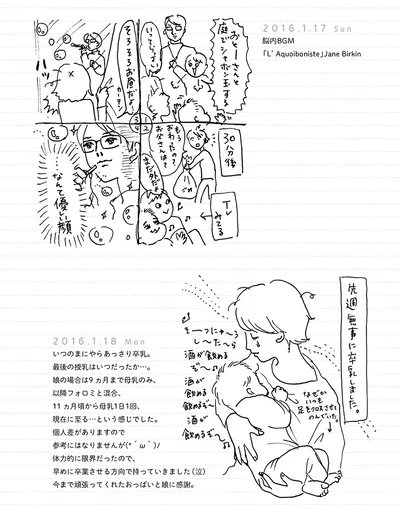 2016.1.17 Sun
脳内BGM
「L’ Aquoiboniste」Jane Birkin
おとーさんと
庭でシャボン玉する
いってらっしゃーい
30分後
もう
おわったの?
お父さんは?
まだ外だよ
TV
みてる
そろそろお昼だよ
カーテン
3 1
4 2
…なんて優しい顔
先週無事に卒乳しました。
そーつにゅーう
しーたーら
酒が飲める
ぞ〜
酒が
飲める
ぞ〜
酒が
飲めるぞ〜
なぜか
いつも
足をクロスさせて
のんでいた。
2016.1.18 Mon
いつのまにやらあっさり卒乳。
最後の授乳はいつだったか…。
娘の場合は9ヵ月まで母乳のみ、
以降フォロミと混合、
11ヵ月頃から母乳1日1回、
現在に至る…という感じでした。
個人差がありますので
参考にはなりませんが(*´ω`)ノ
体力的に限界だったので、
早めに卒業させる方向で持っていきました(泣)
今まで頑張ってくれたおっぱいと娘に感謝。